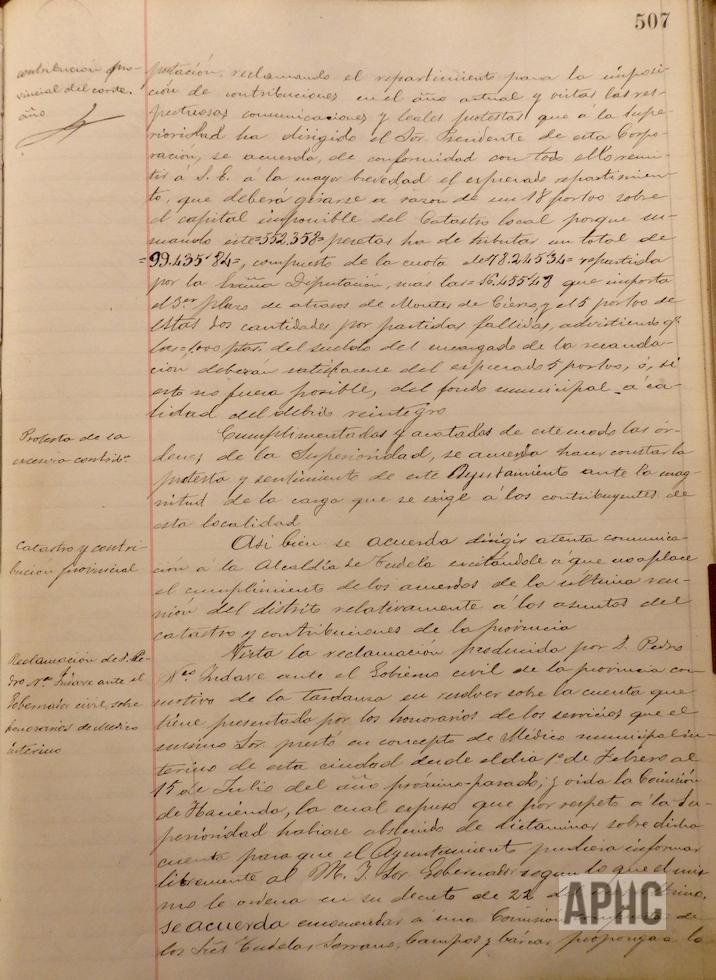 507
contribucion pro-
vincial del corrte.
año
putación, reclamando el repartimiento para la imposi-
ción de contribuciones en el año actual y vistas las res-
pectuosas comunicaciones y leales protestas que á la Supe-
rioridad ha dirigido el Sor. Presidente de esta Corpo-
ración, se acuerda, de conformidad con todo ello remi-
tir á S. E. á la mayor brevedad el expresado repartimien-
to, que deberá girarse a razon de un 18 por 100 sobre
el capital imponible del Catastro local porque su-
mando este =552.358= pesetas ha de tributar un total de
=99.435'84=, compuesto de la cuota de 78.245'34= repartida
por la Excma Diputación, mas las =16.455'48 que importa
el 3er plazo de atrasos de Montes de Cierzo, y el 5 por 100 de
estas dos cantidades por partidas fallidas, advirtiendo q.
las ptas. del sueldo del encargado de la recauda-
cion deberán satisfacerse del expresado 5 por 100, ó, si
esto no fuera posible, del fondo municipal á ca-
lidad del debido reintegro
Protesta de la
excesiva contribn.
Cumplimentadas y acatadas de este modo las ór-
denes de la Superioridad, se acuerda hacer constar la
protesta y sentimiento de este Ayuntamiento ante la mag-
nitud de la carga que se exige á los contribuyentes de
esta localidad
Catastro y contri-
bución provincial
Asi bien se acuerda dirigir atenta comunica-
ción á la Alcaldía de Tudela excitándole á que no aplace
el cumplimiento de los acuerdos de la ultima reu-
nion del distrito relativamente á los asuntos del
catastro y contribuciones de la provincia
Reclamación de D. Pe-
dro Ns. Indave ante el
Gobernador civil, sobre
honorarios de Medico
interino
Vista la reclamación producida por D. Pedro
Ns. Indave ante el Gobierno civil de la provincia con
motivo de la tardanza en resolver sobre la cuenta que
tiene presentada por los honorarios de los servicios que el
mismo Sor. prestó en concepto de Médico municipal in-
terino de esta ciudad desde el dia 1º de Febrero al
15 de Julio del año próximo-pasado; y oida la Comisión
de Hacienda, la cual expuso que por respeto a la Su-
perioridad habiase abstenido de dictaminar sobre dicha
cuenta para que el Ayuntamiento pudiera informar
libremente al M. I. Sor Gobernador segun lo que el mis-
mo le ordena en su decreto de 22 de
se acuerda encomendar a una Comision compuesta de
los Sres Tudela, Serrano, Campos y proponga lo
APHC